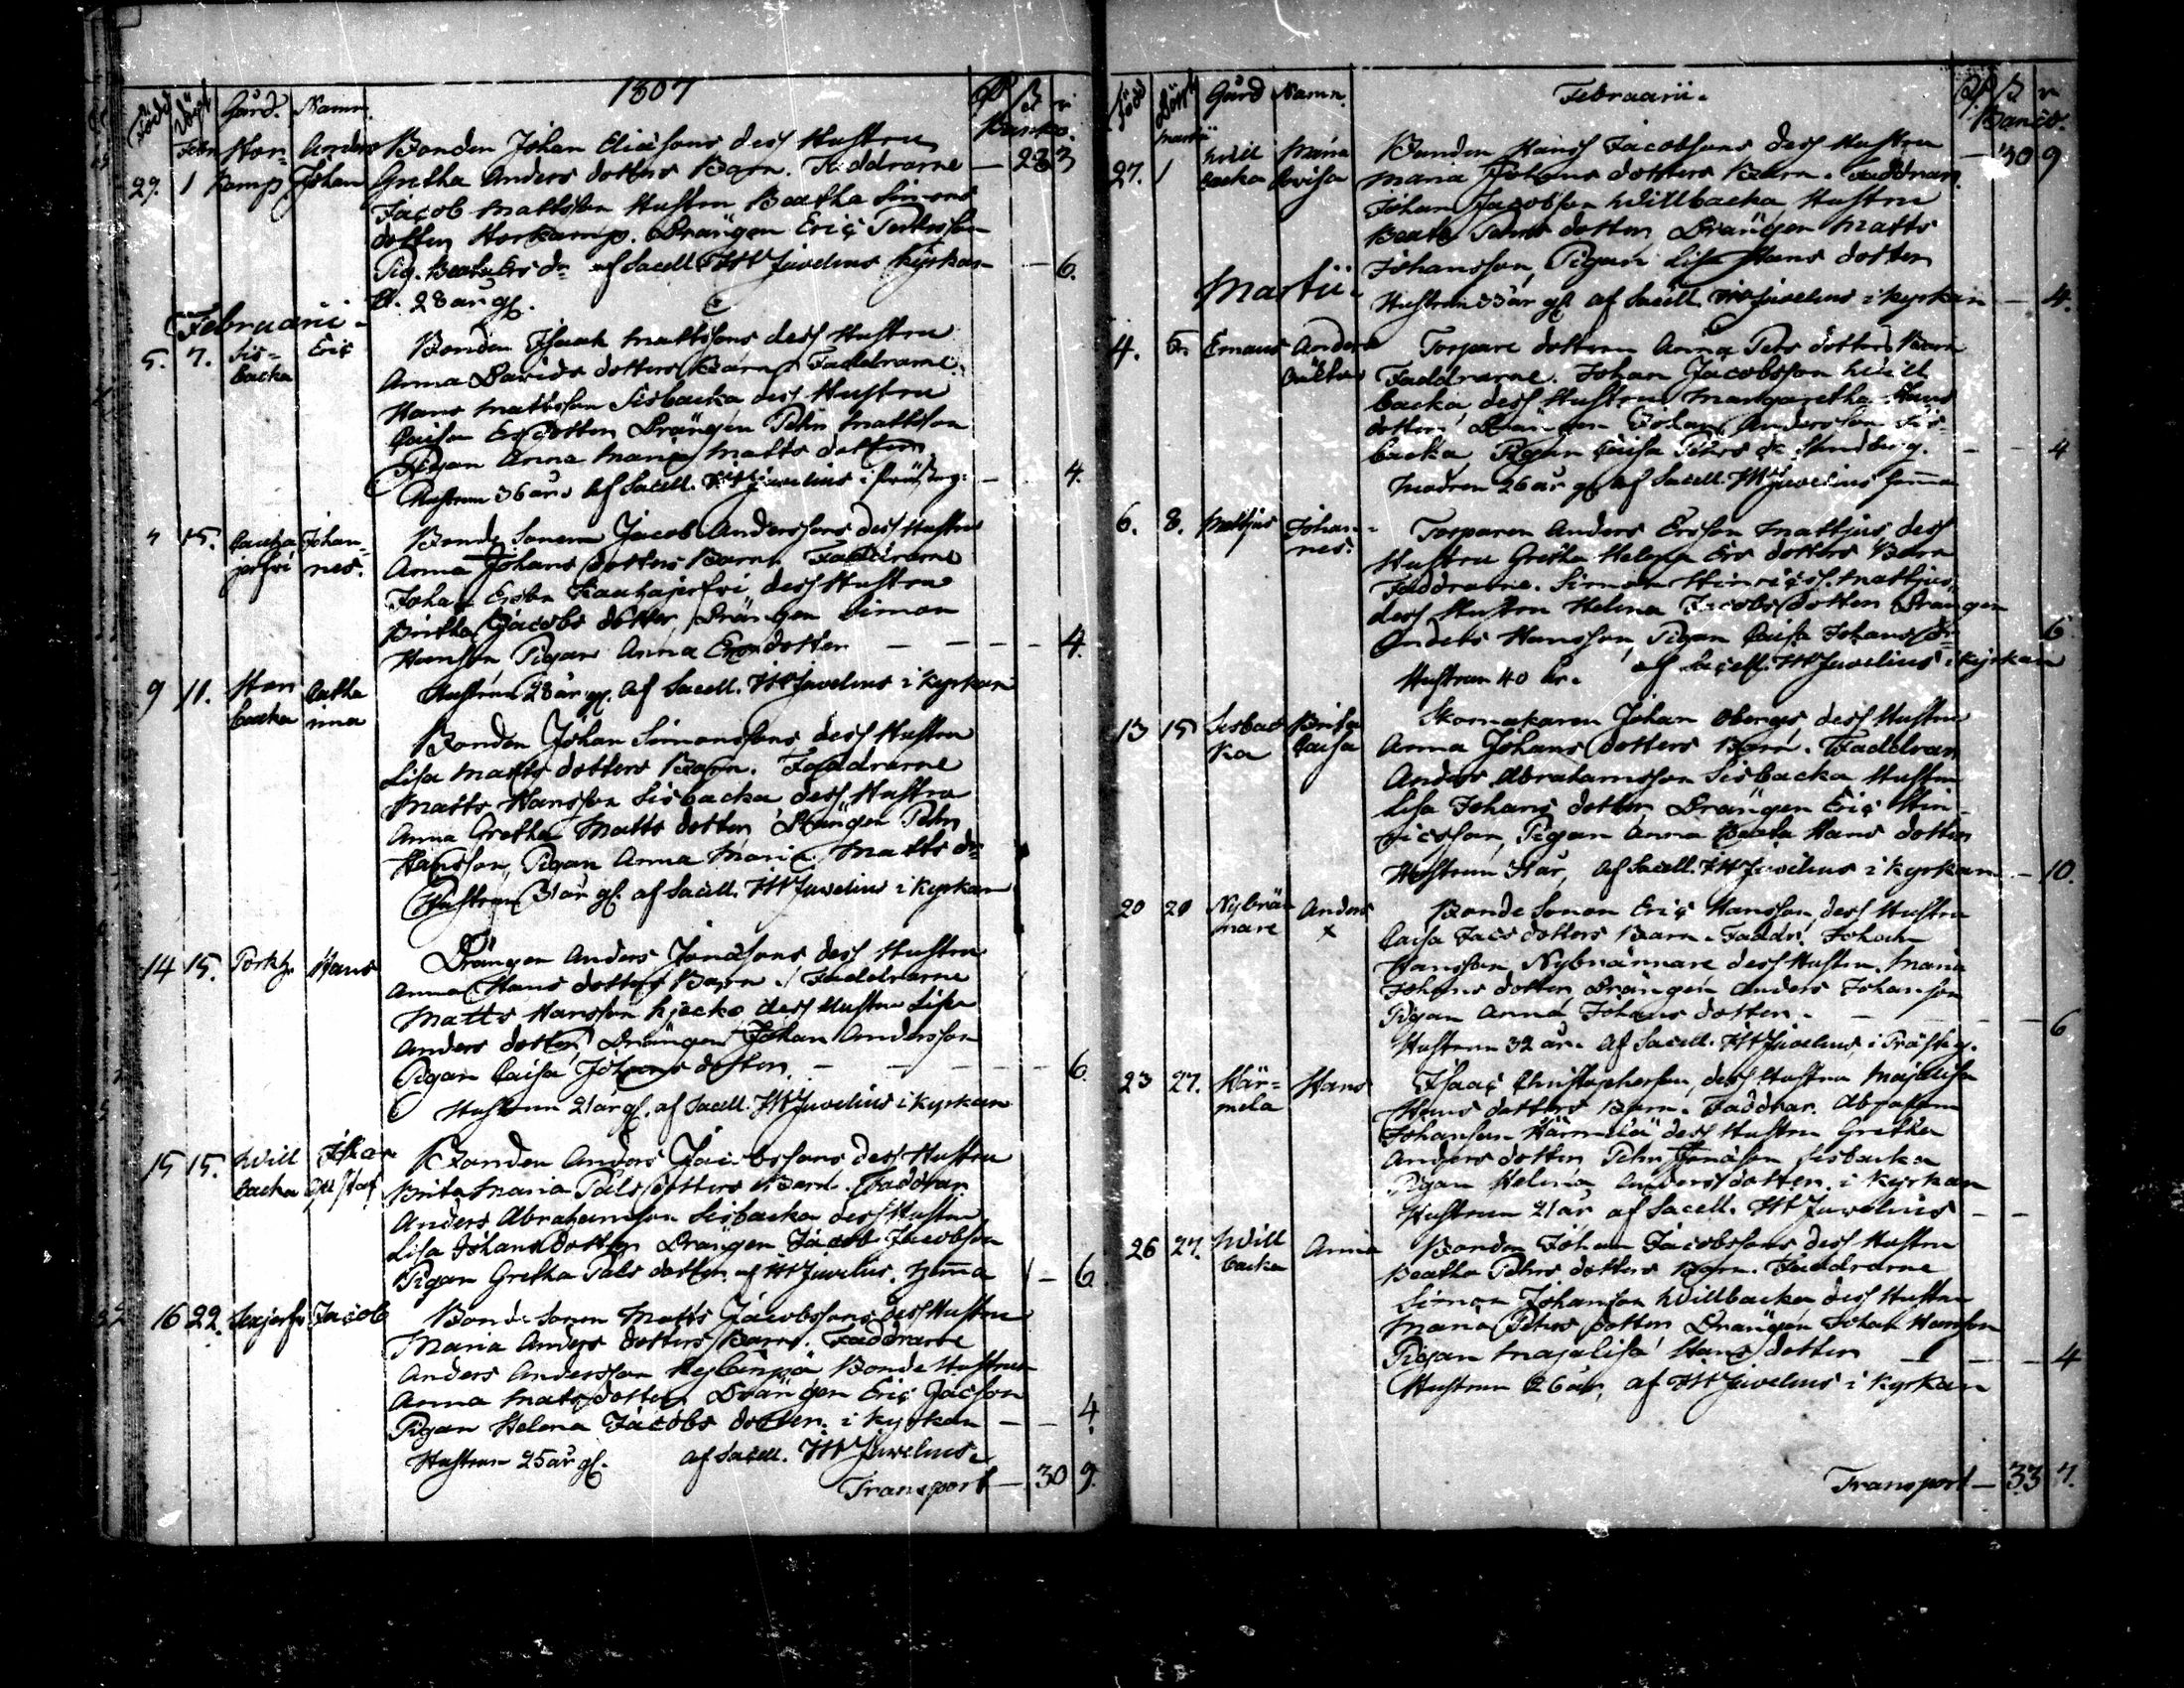 1807
Född Döpt Gård. Namn.
Banko.
Febr Hor- Anders Bonden Johan Eliæsons dess Hustru
29. 1 kamp Johan Gretha Anders dotters Barn. Faddrarne — 28 3
Jacob Mattsson Hustru Beatha Simons
dotter Horkamp. Drängen Eriç
Pig. Beata Ers dr af Sacell. Juvelius kyrkan — 6.
H. 28 år gl.
Februarii
5. 7. Sis- Eriç Bonden Isaak Mattssons dess Hustru
backa Anna Davids dotters Barn Faddrarne.
Hans Mattsson Sisbacka dess Hustru
Caisa Ersdotter Drängen Pehr Mattsson
Pigan Anna Maria Matts dotter
Hustrun 36 år. af Sacell. Juvelius i — 4.
15. Cauha Johan- Bonde Sonen Jacob Anderssons dess Hustru
jerfvi nes. Anna Johans dotters Barn. Faddrarne
Johan Ersson Kauhajerfvi, dess Hustru
Britha Jacobs dotter, Drängen Simon
Hansson Pigan Anna Ersdotter — — — 4.
9 11. Stor Catha Hustrun 28 år gl. af Sacell. Juvelius i kyrkan
backa rina Bonden Johan Simonssons dess Hustru
Lisa Matts dotters Barn. Faddrarne
Matts Hansson Sisbacka dess Hustru
Anna Gretha Matts dotter, Drängen Pehr
Hansson, Pigan Anna Maria Matts dr
Hustrun 31 år gl. af Sacell. Juvelius i kyrkan
14 15. Hans Drängen Anders Jonæsons dess Hustru
Anna Hans dotters Barn. Faddrarne
Matts Hansson dess Hustru Lisa
Anders dotter, Drängen Johan Andersson
Pigan Caisa Johans dotter. — — — 6.
Hustrun 21 år gl. af Sacell. Juvelius i kyrkan
15 15. Will Bonden Anders Jacobssons dess Hustru
backa Gustaf Brita Maria Pals dotters Barn. Faddrar
Anders Abrahamsson Sisbacka dess Hustru
Lisa Johans dotter Drängen Jacob Jacobsson
Pigan Gretha Pals dotter af Juvelius. hema — 6
16 22. Jacob Bonde Sonen Matts Jacobssons dess Hustru
Maria Anders dotters Barn. Faddrarne
Anders Andersson Bonde Hustrun
Anna Mats dotter, Drängen Eriç Jacsson
Pigan Helena Jacobs dotter. i kyrkan — — 4.
Hustrun 25 år gl. af Sacell. Juvelius.
Transport — 30 9.
Februarii.
Född Döpt Gård Namn.
Banco.
Martii
27. 1 Will Maria Bonden Hans Jacobsons dess Hustru — 30 9
backa Lovisa Maria Johans dotters Barn. Faddrar.
Johan Jacobsson Willbacka Hustru
Beata Pehrs dotter, Drängen Matts
Johansson, Pigan Lisa Hans dotter
Martii. Hustrun 33 år gl. af Sacell. Juvelius i kyrkan — 4.
4. 6. Emaus Anders Torpare dottern Anna Pers dotters Barn
Faddrarne. Johan Jacobsson Will
backa dess Hustru Margaretha Hans
dotter, Drängen Johan Andersson Sis-
backa Pigan Caisa Pehrs dr — — 4
Modren 26 år gl. af Sacell. Juvelius hema
6. 8. Mattjus Johan- Torparen Anders Ersson Mattjus, dess
nes. Hustru Gretha Helena Ers dotters Barn
Faddrarne. Simon Hinriçss. Mattjus,
dess Hustru Helena Jacobs dotter Drängen
Anders Hansson, Pigan Caisa Johans dr 6
Hustrun 40 år. af Sacell. Juvelius i kyrkan
13 15 Sisbac Brita Skomakaren Johan Obergs, dess Hustru
ka Caisa Anna Johans dotters Barn. Faddrar
Anders Abrahamsson Sisbacka Hustru
Lisa Johans dotter, Drängen Eriç Hin-
ricsson, Pigan Anna Beata Hans dotter
Hustrun 31 år, af Sacell. Juvelius i kyrkan — 10.
20 20 Nybrän Anders Bonde Sonen Eriç Hansson, dess Hustru
nare x Caisa Jacs dotters Barn. Faddr. Johan
Hansson Nybrännare dess Hustru. Maria
Johans dotter, Drängen Anders Johansson
Pigan Anna Johans dotter. — — — 6
Hustrun 32 år. af Sacell. Juvelius, i Prästg.
23 27. Här- Hans Isaaç Christophersson, dess Hustru Majalisa
mela Hans dotters Barn. Faddrar. Abraham
Johansson Härmälä dess Hustru Gretha
Anders dotter Pehr Jonæson Sisbacka
Pigan Helena Anders dotter. i kyrkan
Hustrun 21 år af Sacell. Juvelius — —
26 27. Will Anna Bonden Johan Jacobssons dess Hustru
backa Beatha Pehrs dotters Barn. Faddrarne
Simon Johansson Willbacka dess Hustru
Maria Pehrs dotter Drängen Johan Hansson
Pigan Majalisa Hans dotter — — — 4
Hustrun 26 år, af Juvelius i kyrkan
Transport — 33 7.